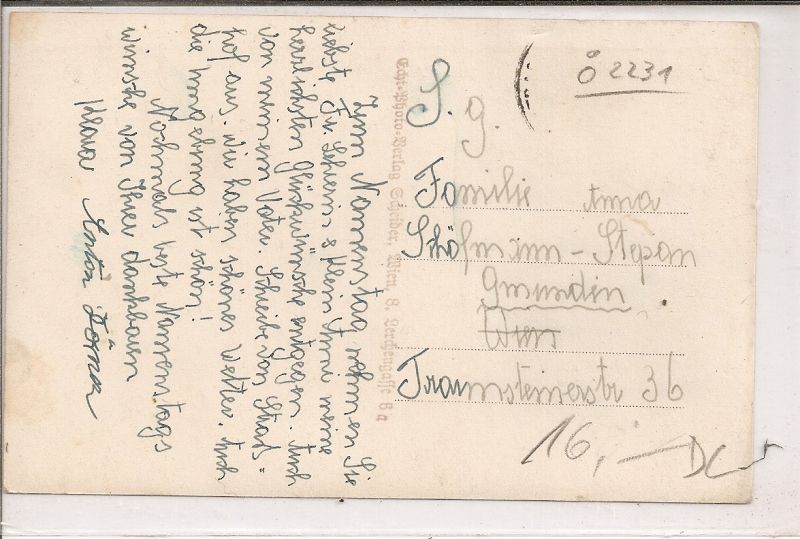 Zum Namenstag nehmen Sie
liebste Fr. Lehrerin & klein Anni meine
herzlichsten Glückwünsche entgegen. Auch
von meinem Vater. Schreibe von Stad=
hof aus. Wir haben schönes Wetter. Auch
die Umgebung ist schön!
Nochmals beste Namenstags
wünsche von Ihrer dankbaren
Klara Anton
Echt-Photo-Verlag Schneider, Wien, 8, Lerchengasse 8a
Ö 2231
S. g.
Familie Anna
Schöfmann - Stepan
Gmunden
Wien
Traunsteinerstr 36
16,—